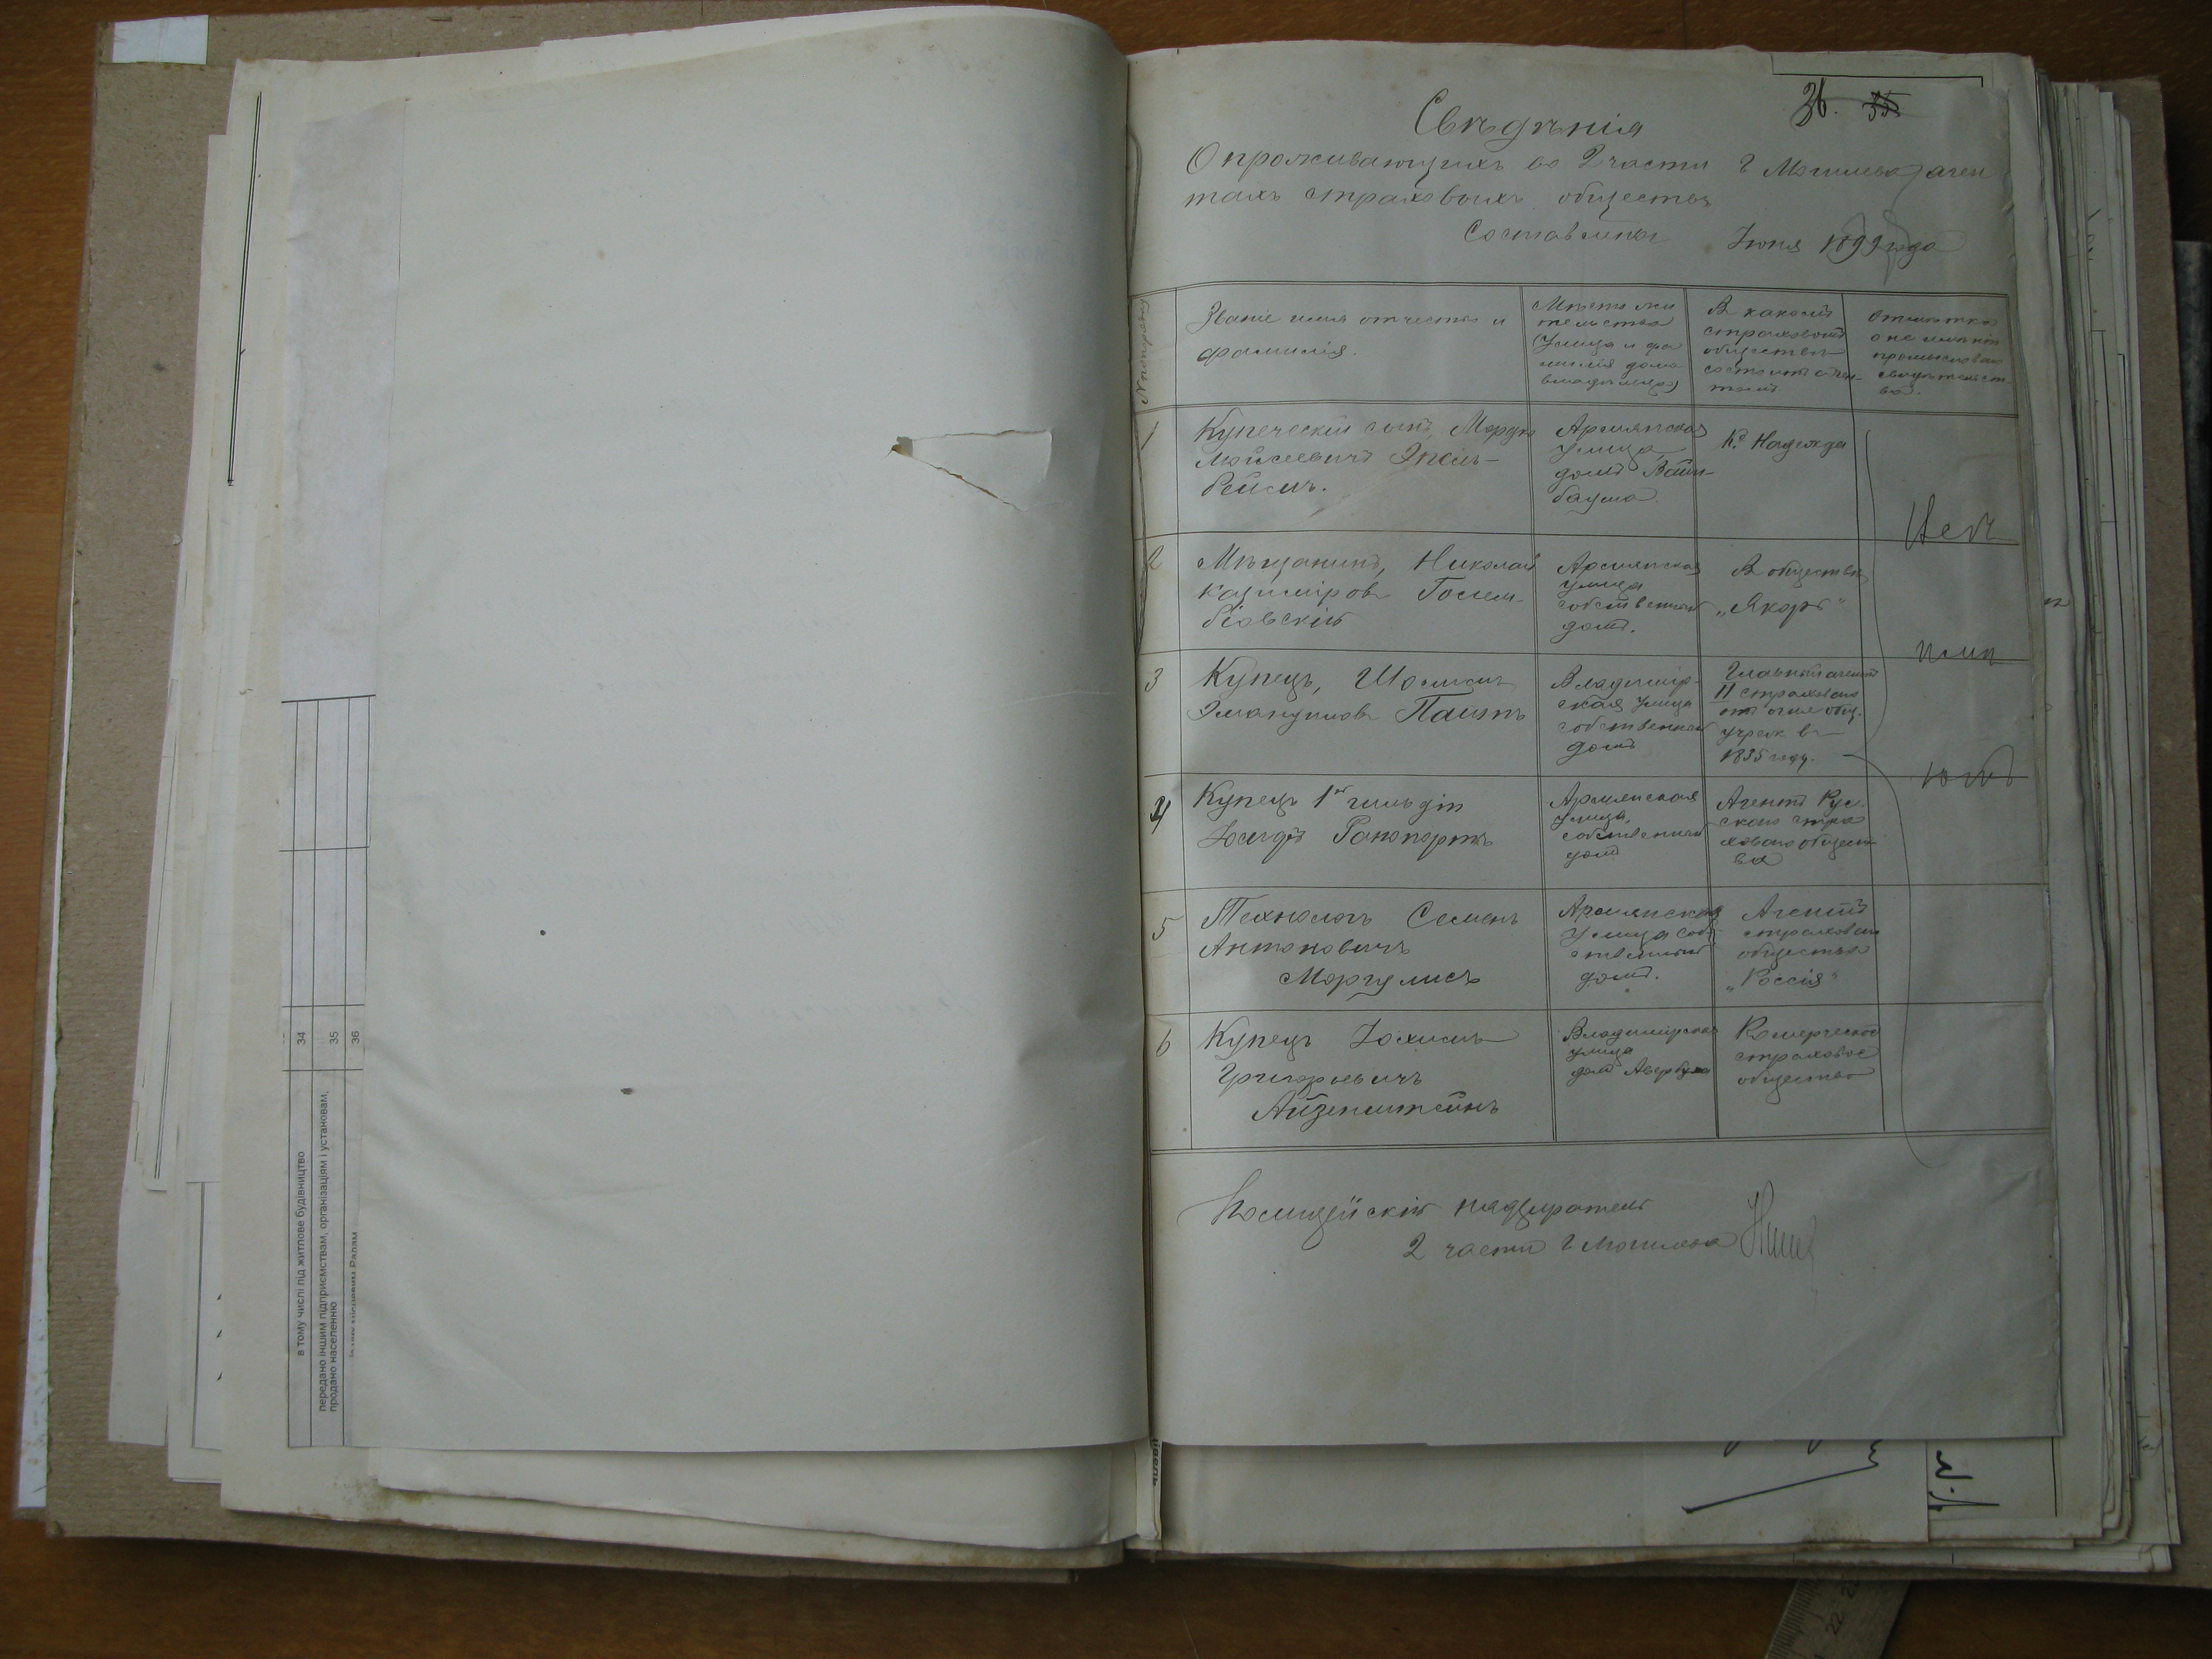 34
35
36
в тому числі під житлове будівництво
передано іншим підприємствам, організаціям і установам,
продано населенню
36. 35
Свѣдѣнія
О проживающихъ во 2 части г Могилева аген
тахъ страховыхъ обществъ
Составлены Іюня 1899 года
№ попорядку
Званіе имя отчество и
фамилія.
Мѣсто жи
тельства
(Улица и фа
милія домо
владѣльца)
В какомъ
страховомъ
обществѣ
состоитъ аген-
томъ
Отмѣтка
о не имѣніи
промысловаго
свидѣтельст-
ва.
1
Купеческій сынъ, Мордко
Мойсеевичъ Эпель-
беймъ.
Армянская
улица,
домъ Вайн-
баума
К.о Надежда
2
Мѣщанинъ, Николай
Казиміровъ Голем-
біовскій
Армянская
улица
собственный
домъ.
В обществѣ
„Якорь"
3
Купецъ,
Эмануиловъ
Владимір-
ская улица
собственный
домъ
Главный агентъ
II страховаго
отъ огня общ.
учреж въ
1835 году.
4
Купецъ 1й гильдіи
Рапопортъ
Армянская
улица,
собственный
домъ
Агентъ Рус.
скаго стра
ховаго общест
ва
5
Технологъ Семенъ
Антоновичъ
Маргулисъ
Армянская
Улица соб
ственный
домъ.
Агентъ
страховаго
общества
„Россія"
6
Купецъ Іохимъ
Григорьевичъ
Айзенштейнъ
Владимірская
улица
домъ Авербуха
Комерческое
страховое
общество
Не
имѣ
ютъ
Полицейскій надзиратель
2 части г Могилева
22